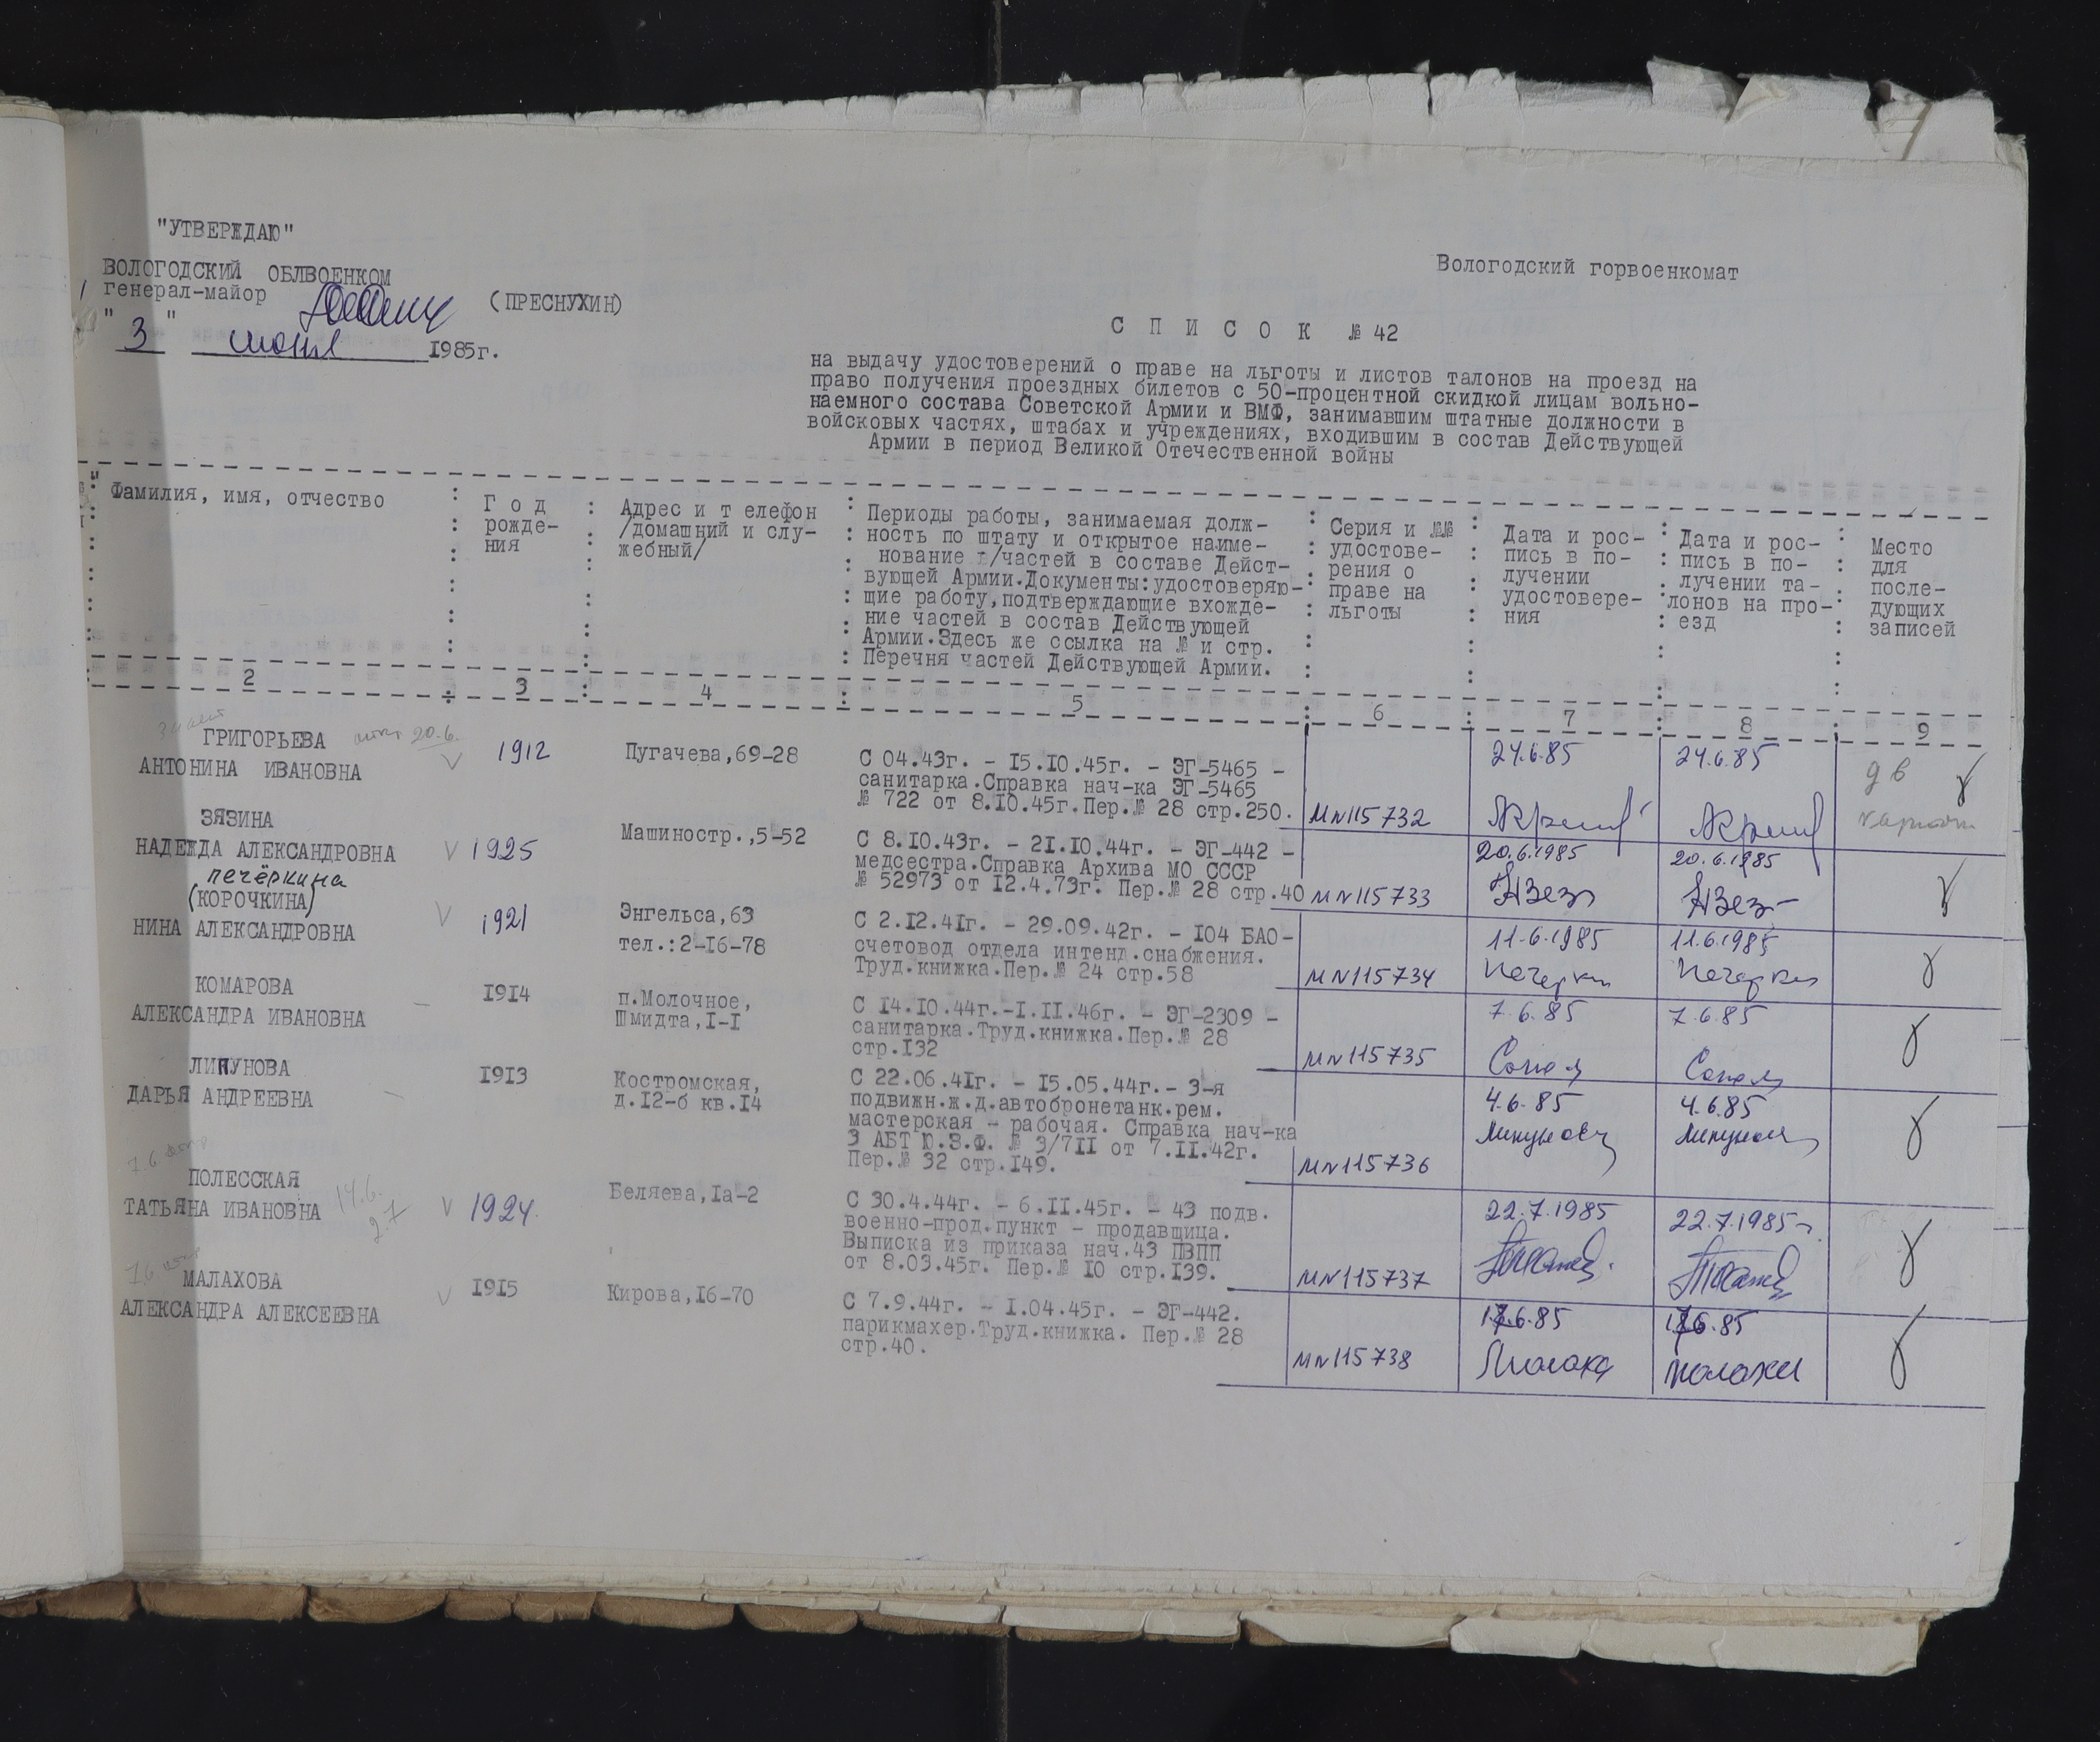 "УТВЕРЖДАЮ"
ВОЛОГОДСКИЙ ОБЛВОЕНКОМ
генерал-майор (ПРЕСНУХИН)
"3" июня 1985г.
Вологодский горвоенкомат
С П И С О К № 42
на выдачу удостоверений о праве на льготы и листов талонов на проезд на
право получения проездных билетов с 50-процентной скидкой лицам вольно-
наемного состава Советской Армии и ВМФ, занимавшим штатные должности в
войсковых частях, штабах и учреждениях, входившим в состав Действующей
Армии в период Великой Отечественной войны
Фамилия, имя, отчество
Г о д
рожде-
ния
Адрес и т елефон
/домашний и слу-
жебный/
Периоды работы, занимаемая долж-
ность по штату и открытое наиме-
нование в/частей в составе Дейст-
вующей Армии.Документы:удостоверяю-
щие работу,подтверждающие вхожде-
ние частей в состав Действующей
Армии.Здесь же ссылка на № и стр.
Перечня частей Действующей Армии.
Серия и №№
удостове-
рения о
праве на
льготы
Дата и рос-
пись в по-
лучении
удостовере-
ния
Дата и рос-
пись в по-
лучении та-
лонов на про-
езд
Место
для
после-
дующих
записей
2 3 4 5 6 7 8 9
ГРИГОРЬЕВА 20.6.
АНТОНИНА ИВАНОВНА
1912
Пугачева,69-28
С 04.43г. - 15.10.45г. - ЭГ-5465 -
санитарка.Справка нач-ка ЭГ-5465
№ 722 от 8.10.45г.Пер.№ 28 стр.250.
МN115732
24.6.85
24.6.85
ЗЯЗИНА
НАДЕЖДА АЛЕКСАНДРОВНА
1925
Машиностр.,5-52
С 8.10.43г. - 21.10.44г. - ЭГ-442 -
медсестра.Справка Архива МО СССР
№ 52973 от 12.4.73г. Пер.№ 28 стр.40
МN115733
20.6.1985
20.6.1985
печёркина
(КОРОЧКИНА)
НИНА АЛЕКСАНДРОВНА
1921
Энгельса,63
тел.:2-16-78
С 2.12.41г. - 29.09.42г. - 104 БАО-
счетовод отдела интенд.снабжения.
Труд.книжка.Пер.№ 24 стр.58
МN115734
11.6.1985
11.6.1985
КОМАРОВА
АЛЕКСАНДРА ИВАНОВНА
1914
п.Молочное,
Шмидта,1-1
С 14.10.44г.-1.11.46г. - ЭГ-2309 -
санитарка.Труд.книжка.Пер.№ 28
стр.132
МN115735
7.6.85
7.6.85
ЛИПУНОВА
ДАРЬЯ АНДРЕЕВНА
1913
Костромская,
д.12-б кв.14
С 22.06.41г. - 15.05.44г.- 3-я
подвижн.ж.д.автобронетанк.рем.
мастерская - рабочая. Справка нач-ка
3 АБТ Ю.З.Ф. № 3/711 от 7.11.42г.
Пер.№ 32 стр.149.
МN115736
4.6.85
4.6.85
ПОЛЕССКАЯ
ТАТЬЯНА ИВАНОВНА
14.6.
2.7
1924.
Беляева,1а-2
С 30.4.44г. - 6.11.45г. - 43 подв.
военно-прод.пункт - продавщица.
Выписка из приказа нач.43 ПВПП
от 8.03.45г. Пер.№ 10 стр.139.
МN115737
22.7.1985
22.7.1985
МАЛАХОВА
АЛЕКСАНДРА АЛЕКСЕЕВНА
1915
Кирова,16-70
С 7.9.44г. - 1.04.45г. - ЭГ-442.
парикмахер.Труд.книжка. Пер.№ 28
стр.40.
МN115738